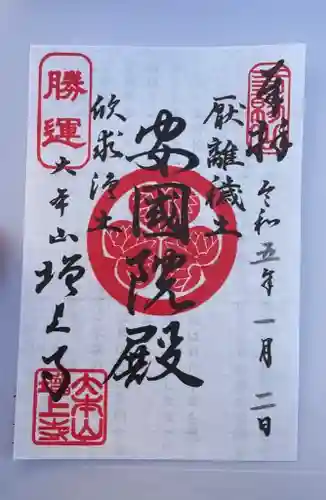 奉拝
令和五年一月二日
厭離穢土
安國院殿
欣求浄土
勝運
大本山
増上寺
大本山
増上寺